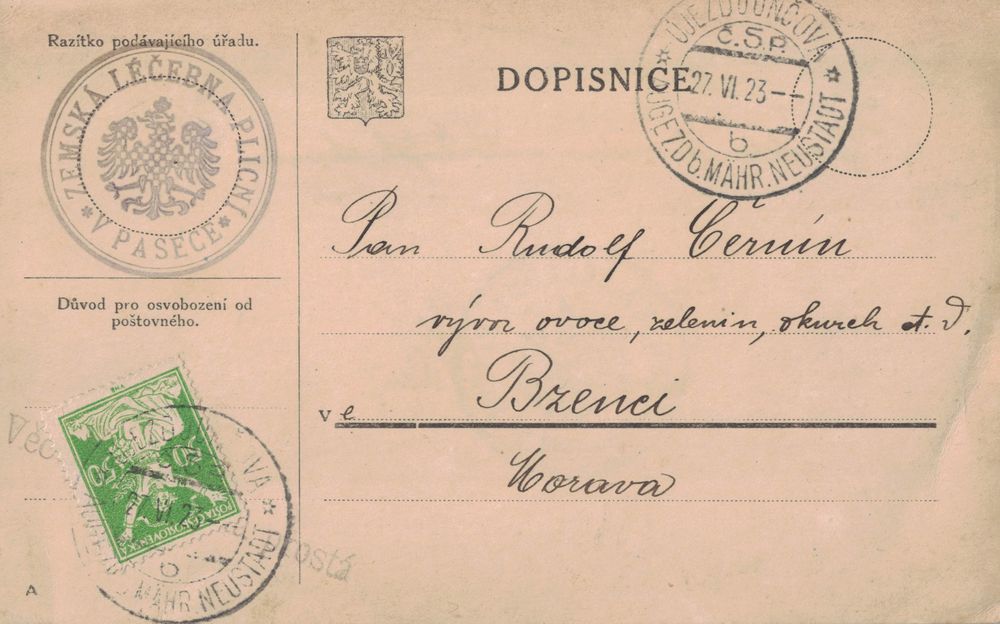 Razítko podávajícího úřadu.
ZEMSKÁ LÉČEBNA PLICNÍ
* V PASECE *
Důvod pro osvobození od
poštovného.
DOPISNICE
ÚJEZD U UNČOVA
Č.S.P.
27. VI. 23 --
b
* ÚGEZD b. MÄHR. NEUSTADT *
Pan Rudolf Černín
vývoz ovoce, zelenin, okurek a t. d.
ve Bzenci
Morava
50
50
POSTA ČESKOSLOVENSKÁ
27. VI. 23
b
VA *
MÄHR. NEUSTADT
Věc
rostá
A